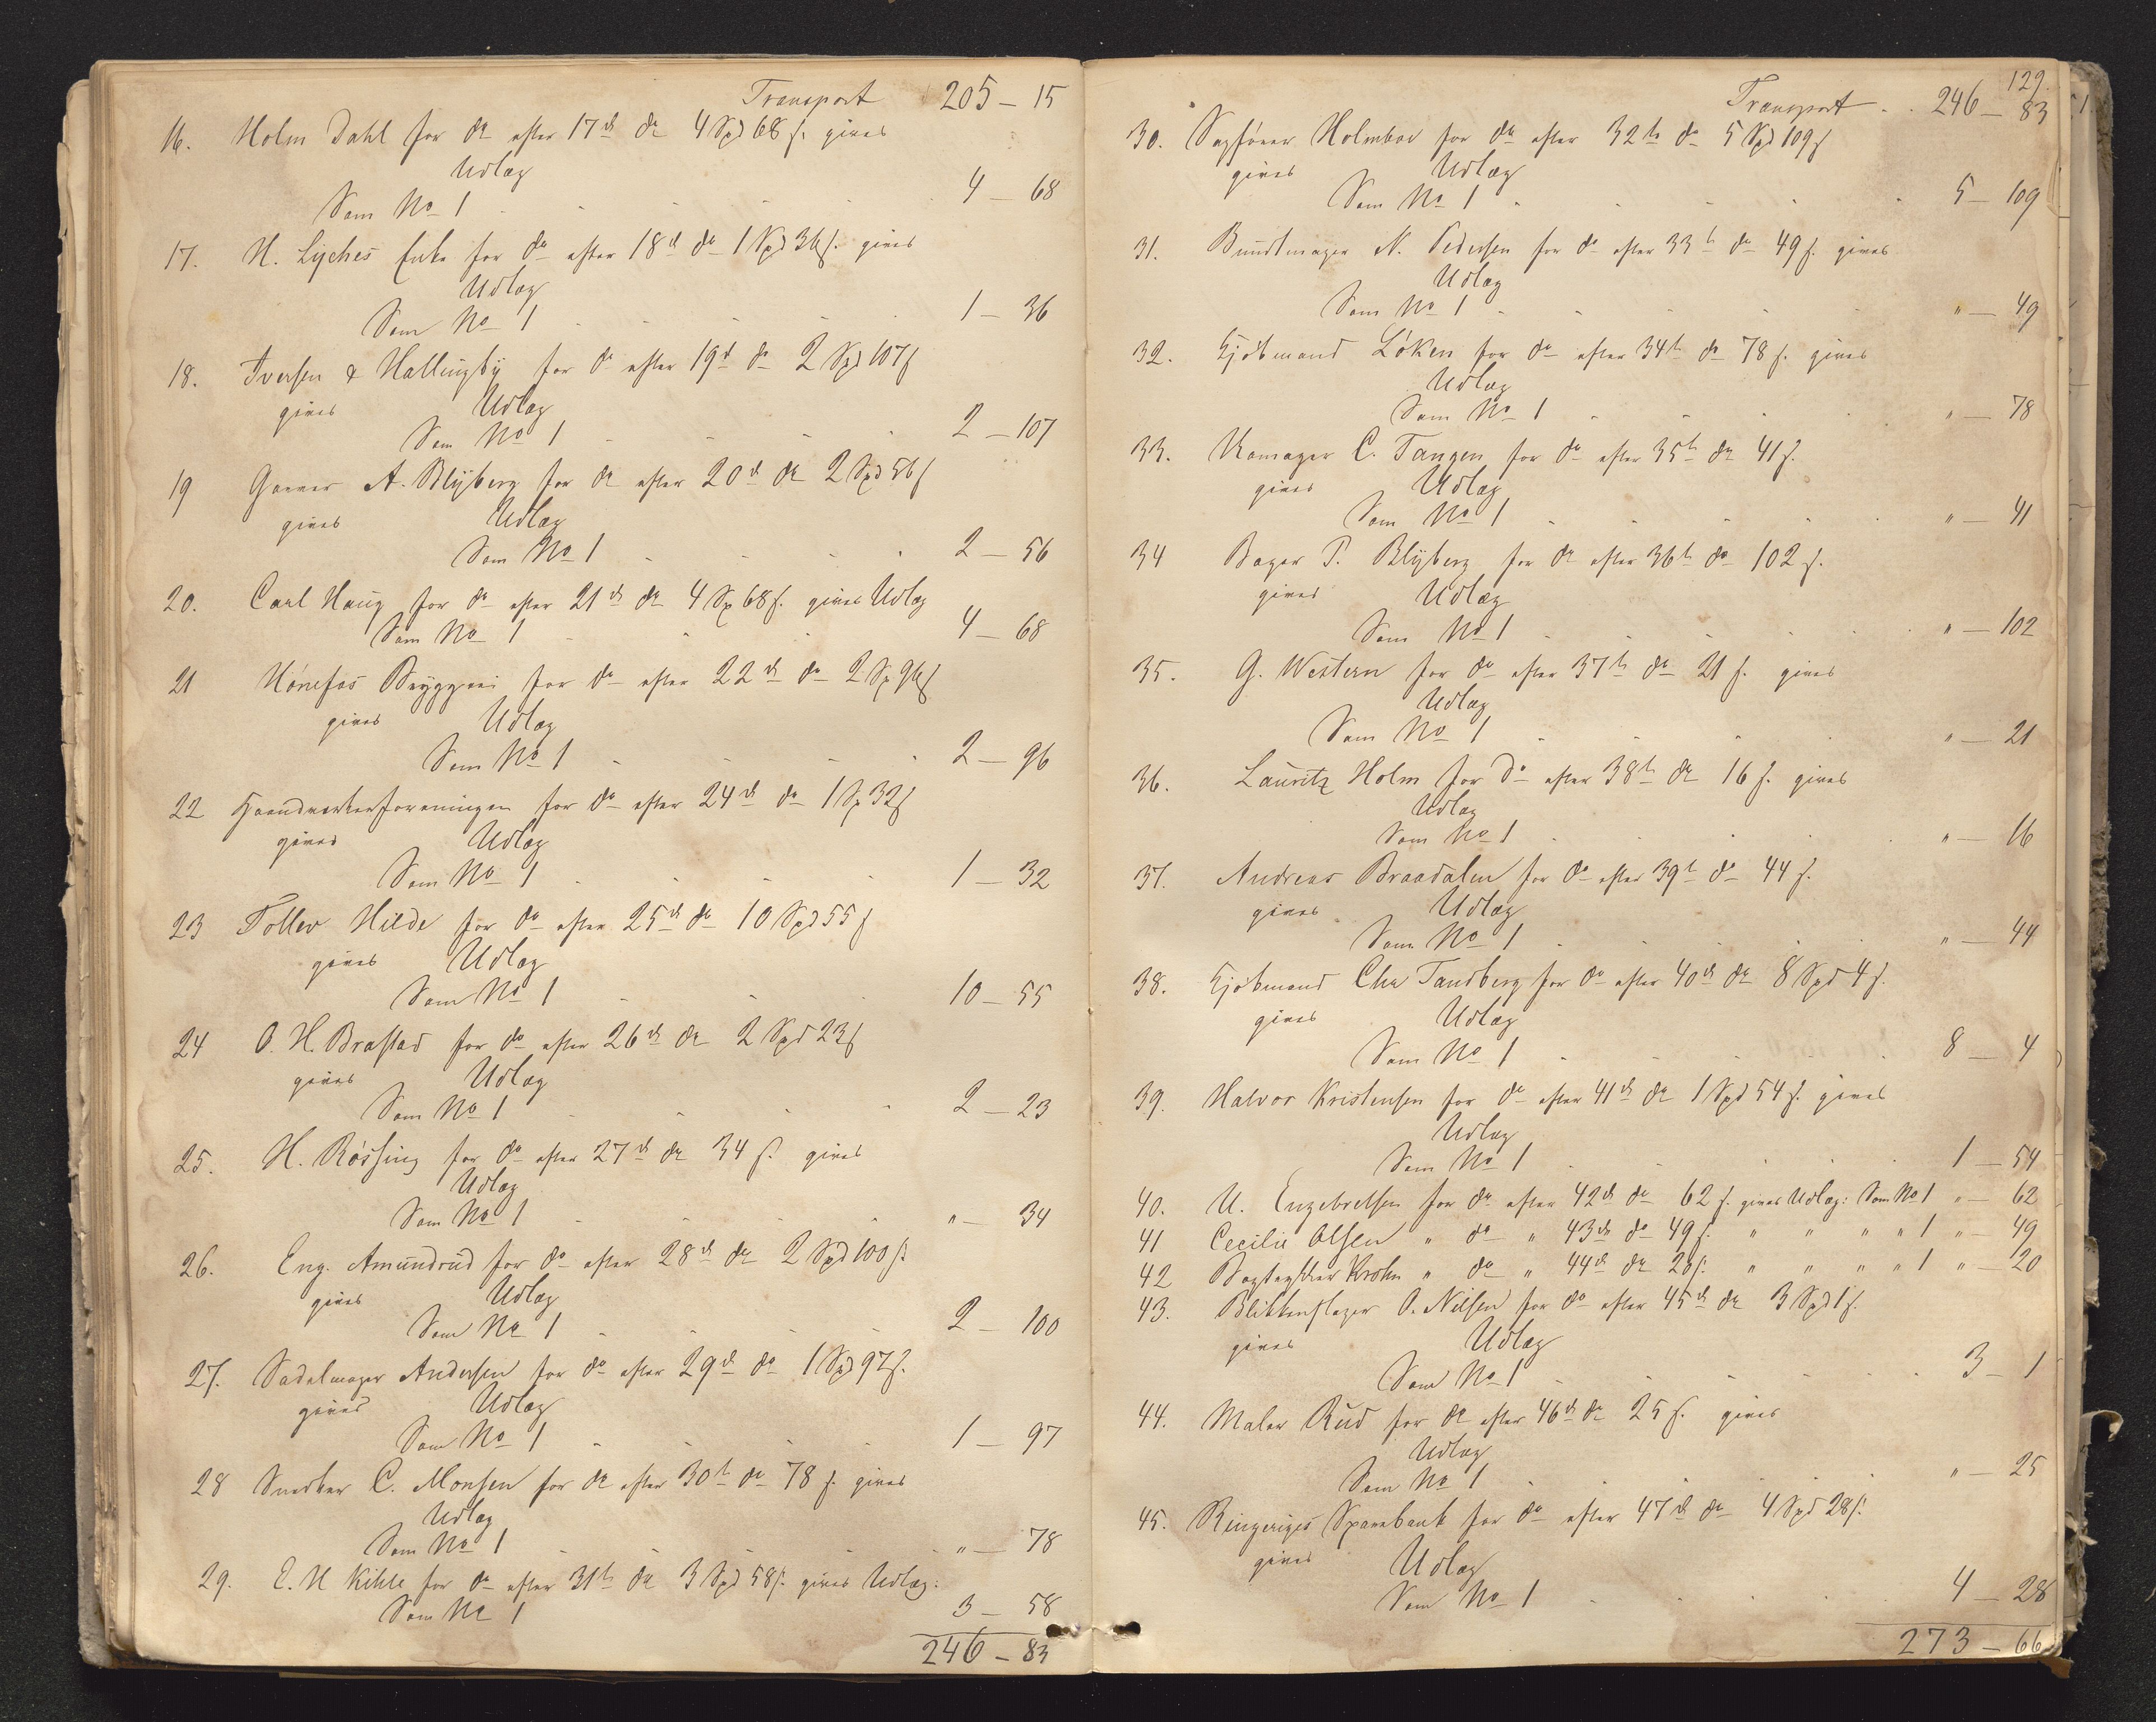 Transport 205 — 15
16. Holm Dahl for do efter 17de do 4 Spd 68 s. gives
Udlæg
Som No 1 4 — 68
17. H. Lyches Enke for do efter 18d do 1 Spd 36 s. gives
Udlæg
Som No 1 1 — 36
18. Iversen & Hallingby for do efter 19d do 2 Spd 107 s
gives Udlæg
Som No 1 2 — 107
19 Garver A. Blyberg for do efter 20d do 2 Spd 56 s
gives Udlæg
Som No 1 2 — 56
20. Carl Haug for do efter 21d do 4 Sp 68 s. gives Udlæg
Som No 1 4 — 68
21 Hønefos Bryggeri for do efter 22d do 2 Sp 96 s
gives Udlæg
Som No 1 2 — 96
22 Haandverkerforeningen for do efter 24d do 1 Sp 32 s
gives Udlæg
Som No 1 1 — 32
23 Tollev Hilde for do efter 25d do 10 Spd 55 s
gives Udlæg
Som No 1 10 — 55
24 O. H. Brastad for do efter 26d do 2 Spd 23 s
gives Udlæg
Som No 1 2 — 23
25. H. Røssing for do efter 27d do 34 s. gives
Udlæg
Som No 1 " — 34
26. Eng. Amundrud for do efter 28d do 2 Spd 100 s.
gives Udlæg
Som No 1 2 — 100
27. Sadelmager Andersen for do efter 29d do 1 Spd 97 s.
gives Udlæg
Som No 1 1 — 97
28 Snedker C. Monsen for do efter 30te do 78 s. gives
Udlæg
Som No 1 " — 78
29. E. H Kihle for do efter 31te do 3 Spd 58 s. gives Udlæg:
Som No 1 3 — 58
246 — 83
129.
Transport 246 — 83
30. Sagfører Holmboe for do efter 32te do 5 Spd 109 s
gives Udlæg
Som No 1 5 — 109
31. Bundtmager N. Pedersen for do efter 33te do 49 s. gives
Udlæg
Som No 1 " — 49
32. Kjøbmand Løken for do efter 34te do 78 s. gives
Udlæg
Som No 1 " — 78
33. C. Tangen for do efter 35te do 41 s.
gives Udlæg
Som No 1 " — 41
34 Bager P. Blyberg for do efter 36te do 102 s.
gives Udlæg
Som No 1 " — 102
35. G. Western for do efter 37te do 21 s. gives
Udlæg
Som No 1 " — 21
36. Lauritz Holm for Do efter 38te do 16 s. gives
Udlæg
Som No 1 " — 16
37. Andreas Braadalen for do efter 39te do 44 s.
gives Udlæg
Som No 1 " — 44
38. Kjøbmand Chr Tandberg for do efter 40d do 8 Spd 4 s.
gives Udlæg
Som No 1 8 — 4
39. Halvor Kristensen for do efter 41d do 1 Spd 54 s. gives
Udlæg
Som No 1 1 — 54
40. U. Engebretsen for do efter 42d do 62 s. gives Udlæg: Som No 1 " — 62
41 Cecilie Olsen " do " 43d do 49 s. " " " " 1 " — 49
42 Bogtrykker Krohn " do " 44d do 20 s. " " " " 1 " — 20
43. Blikkenslager O. Nilsen for do efter 45d do 3 Spd 1 s.
gives Udlæg
Som No 1 3 — 1
44. Maler Rud for do efter 46d do 25 s. gives
Udlæg
Som No 1 " — 25
45. Ringeriges Sparebank for do efter 47d do 4 Spd 28 s.
gives Udlæg
Som No 1 4 — 28
273 — 66